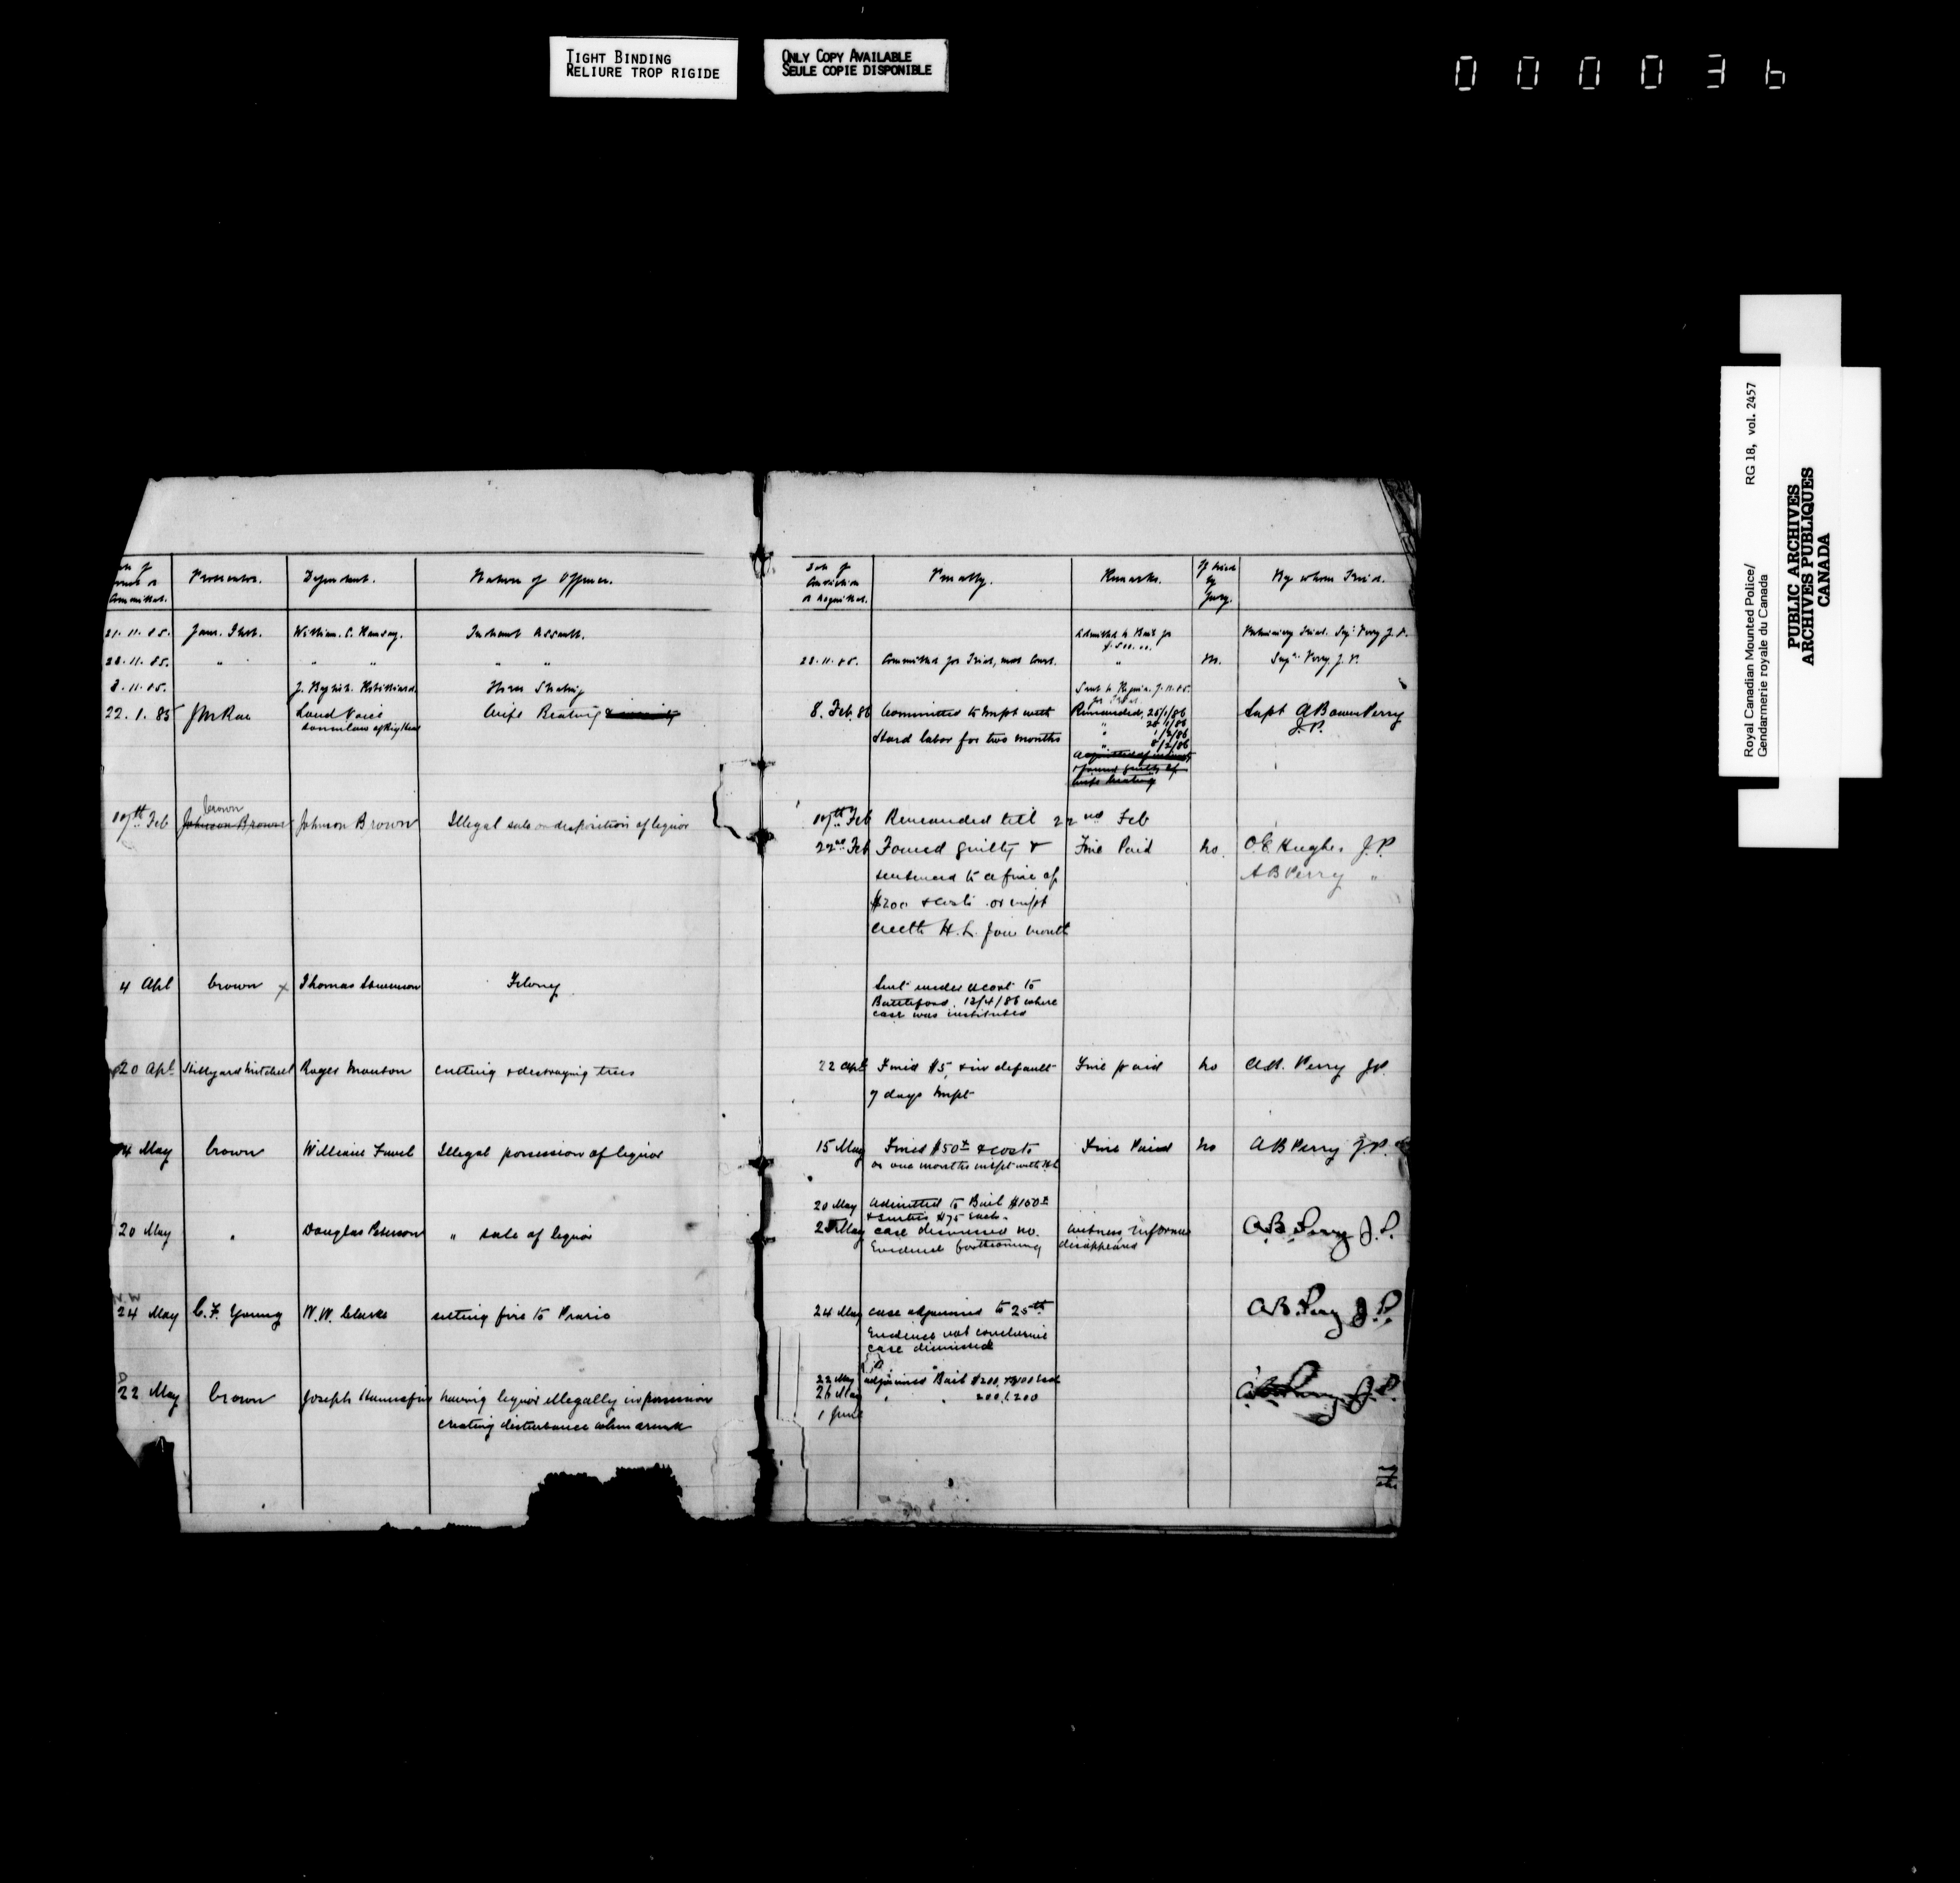 TIGHT BINDING
RELIURE TROP RIGIDE
ONLY COPY AVAILABLE
SEULE COPIE DISPONIBLE
0 0 0 0 3 6
Royal Canadian Mounted Police/ RG 18, vol. 2457
Gendarmerie royale du Canada
PUBLIC ARCHIVES
ARCHIVES PUBLIQUES
CANADA
Prosecutor. Defendant. Nature of Offence. Date of Conviction or Acquittal. Penalty. Remarks. If tried by Jury. By whom Tried.
21.11.85. William. C. Ramsay. Indecent Assault. Admitted to Bail for Preliminary Trial. Supt. Perry J.P.
28.11.85. " " " " " 28.11.85. Committed for Trial, next Court. " Supt. Perry J.P.
8.11.85. Horse Stealing Sent to Regina.
for Trial.
22.1.85 J McRae Loud Voice Wife Beating 8. Feb. 86 Committed to Impt with Remanded 25/1/86 Supt A Bowen Perry
J.P.
Hard labor for two months " 1/2/86
" 8/2/86
acquitted of
& found guilty of
wife beating
crown
17th Feb Johnson Brown Johnson Brown Illegal sale or disposition of liquor 17th Feb Remanded till 22nd Feb
22nd Feb Found guilty & Fine Paid no. O.E. Hughes J.P.
sentenced to a fine of A B Perry "
$200 & costs or impt
with H.L. four month
4 Apl crown x Thomas Felony Sent under escort to
Battleford 12/4/86 where
case was instituted
20 Apl Hillyard Mitchell Roger cutting & destroying trees 22 Apl Fined $5 & in default Fine paid no A.B. Perry JP.
7 days Impt
May crown William Favel Illegal possession of liquor 15 May Fined $50 & costs Fine Paid no A B Perry J.P.
or one months impt with HL
20 May admitted to Bail $150
& sureties $75 each
20 May " Douglas Peterson " sale of liquor May case dismissed no witness informer A.B. Perry J.P.
Evidence forthcoming disappeared
24 May C.F. Young W.W. Clarke setting fire to Prairie 24 May case adjourned to 25th A.B. Perry J.P.
Evidence not conclusive
case dismissed
22 May crown Joseph having liquor illegally in possession 22 May adjourned Bail $200 A.B. Perry J.P.
creating disturbance when drunk 26 May " " 200 & 200
1 June